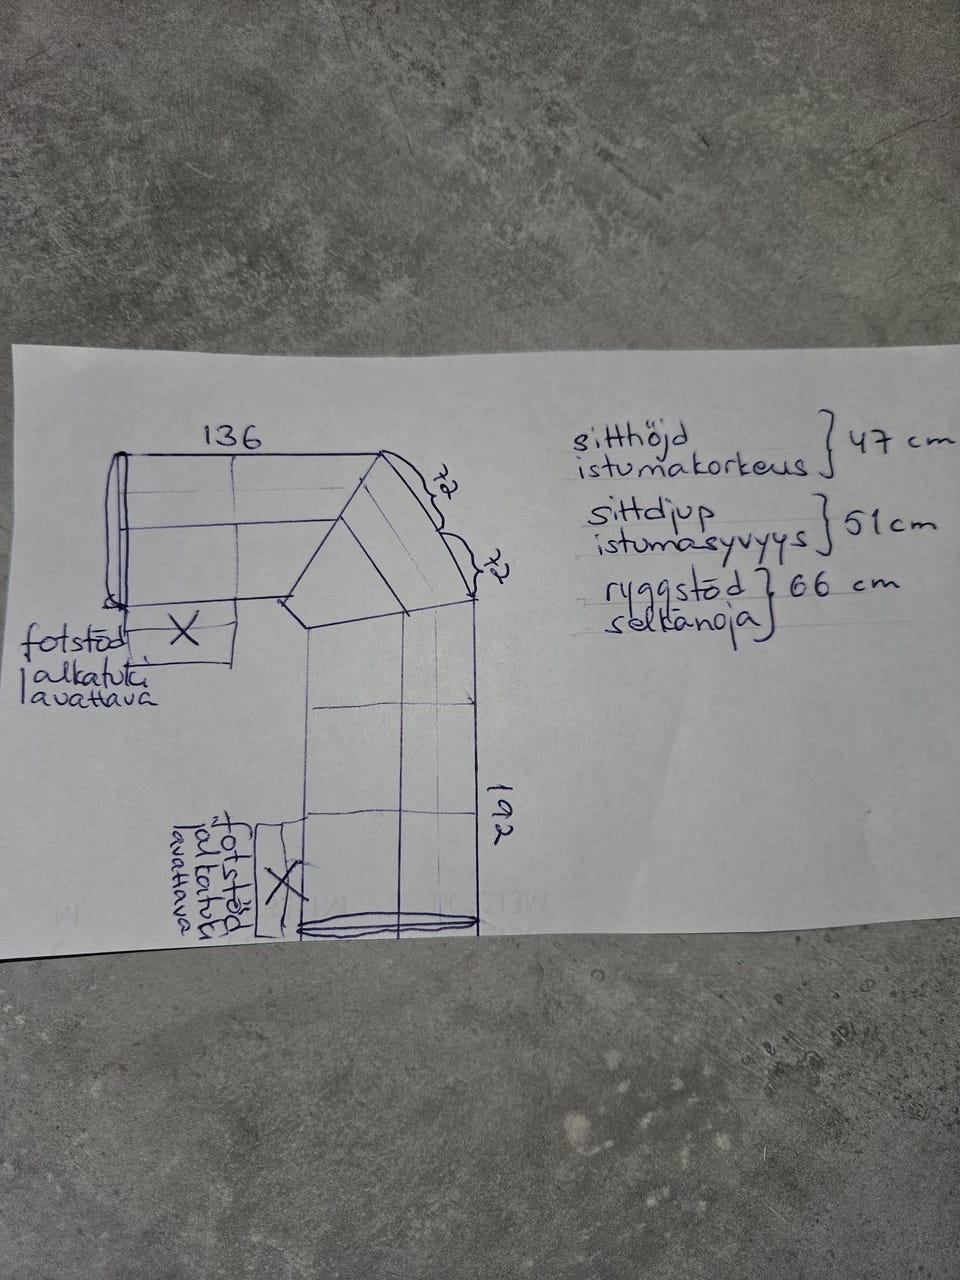 136
72
72
192
fotstöd
jalkatuki
lavattava
fotstöd
jalkatuki
lavattava
sitthöjd
istumakorkeus } 47 cm
sittdjup
istumasyvyys } 51 cm
ryggstöd
selkänoja } 66 cm